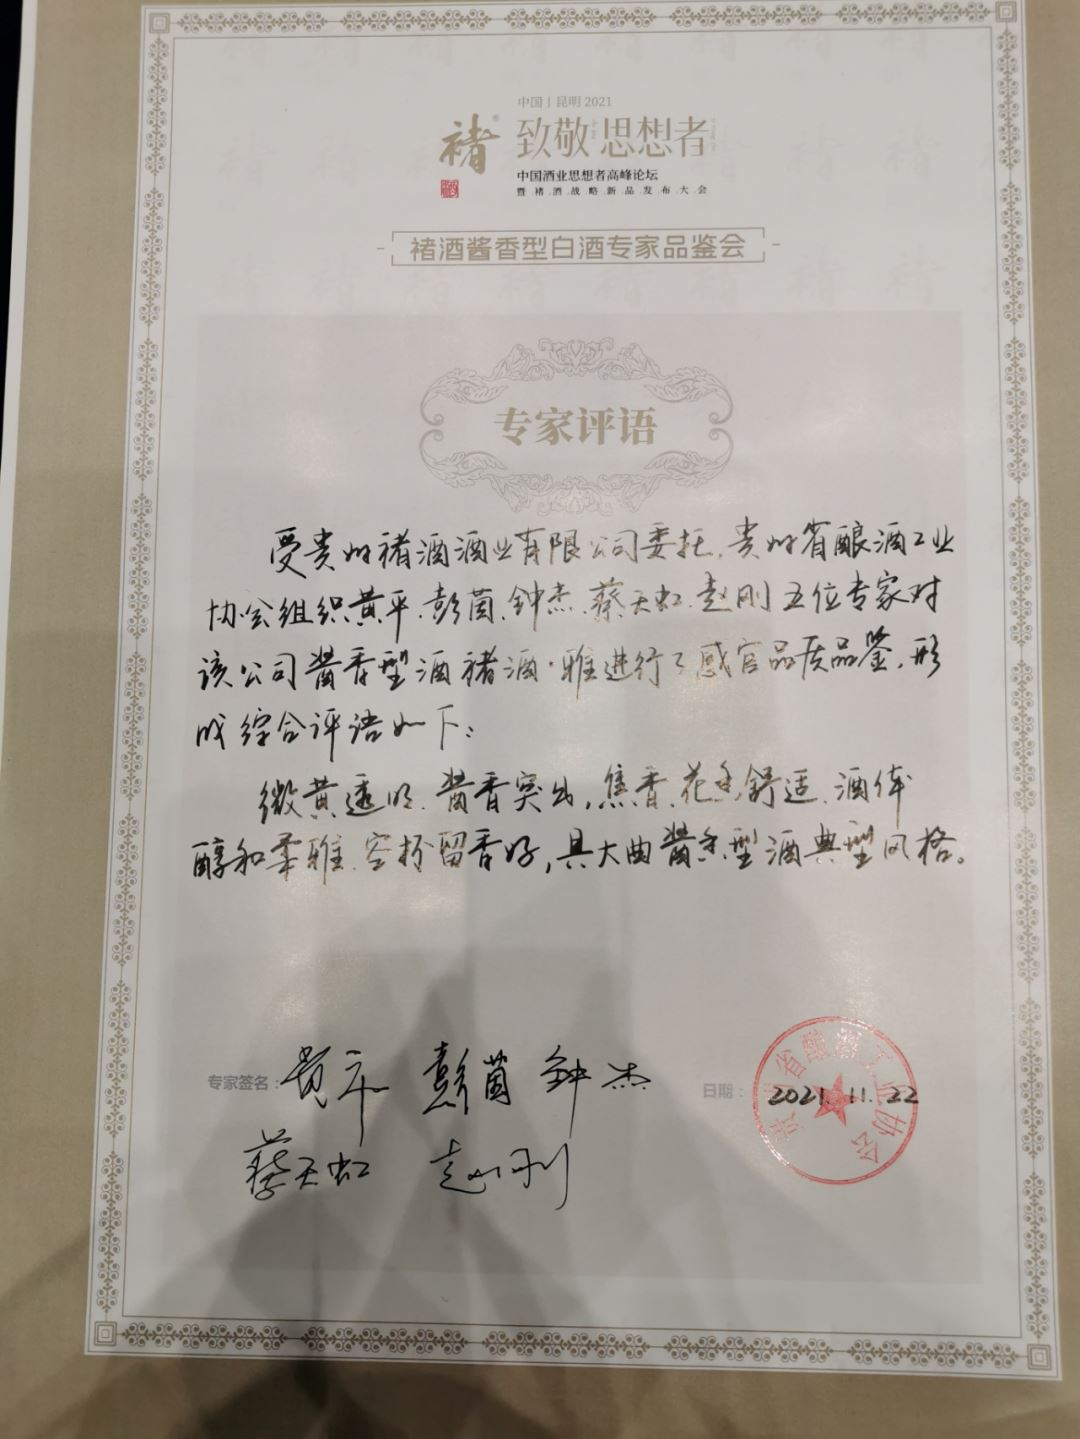 中国 | 昆明 2021
褚®
致敬 思想者
中国酒业思想者高峰论坛
暨褚酒战略新品发布大会
褚酒酱香型白酒专家品鉴会
专家评语
受贵州褚酒酒业有限公司委托,贵州省酿酒工业
协会组织黄平、彭茵、钟杰、蔡天虹、赵刚五位专家对
该公司酱香型酒褚酒·雅进行了感官品质品鉴,形
成综合评语如下:
微黄透明、酱香突出,焦香、花香舒适、酒体
醇和柔雅、空杯留香好,具大曲酱香型酒典型风格。
专家签名: 黄平 彭茵 钟杰
日期: 2021.11.22
蔡天虹 赵刚
贵州省酿酒工业协会